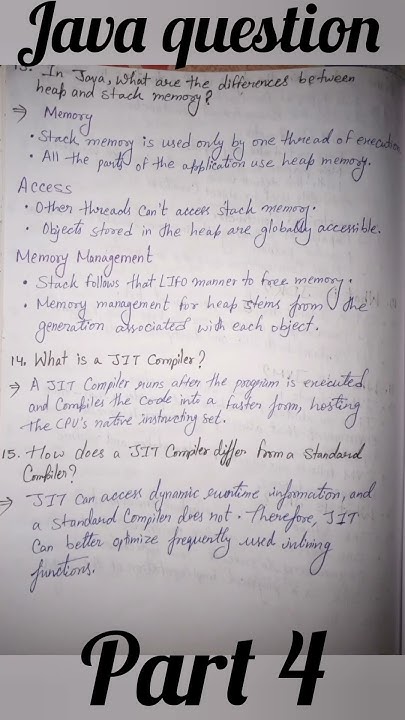 Java question
13. In Java, what are the differences between
heap and stack memory?
⇒ Memory
• Stack memory is used only by one thread of execution
• All the parts of the application use heap memory.
Access
• Other threads can't access stack memory.
• Objects stored in the heap are globally accessible.
Memory Management
• Stack follows that LIFO manner to free memory.
• Memory management for heap stems from the
generation associated with each object.
14. What is a JIT Compiler?
⇒ A JIT Compiler runs after the program is executed
and Compiles the code into a faster form, hosting
the CPU's native instructing set.
15. How does a JIT Compiler differ from a Standard
Compiler?
⇒ JIT can access dynamic runtime information, and
a standard Compiler does not. Therefore, JIT
Can better optimize frequently used inlining
functions.
Part 4